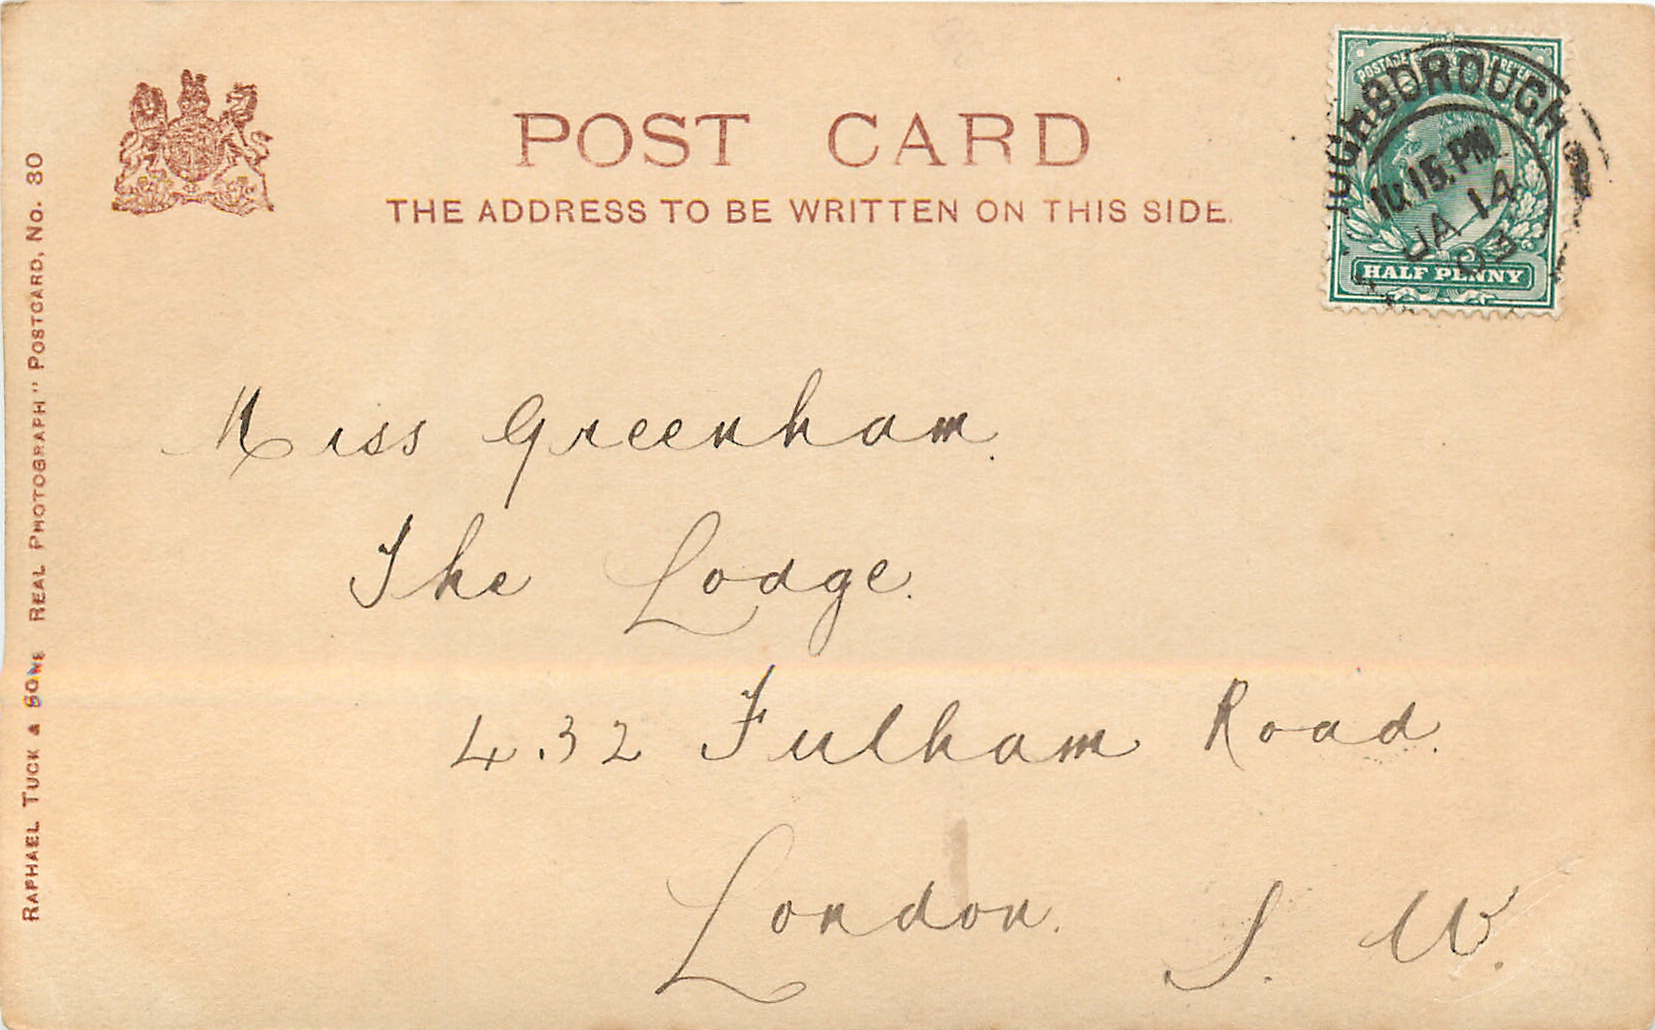 POST CARD
THE ADDRESS TO BE WRITTEN ON THIS SIDE.
POSTAGE
LOUGHBOROUGH
10.15.PM
JA 14
03
HALF PENNY
RAPHAEL TUCK & SONS REAL PHOTOGRAPH" POSTCARD, No. 30
Miss Greenham.
The Lodge.
432 Fulham Road.
London. S. W.